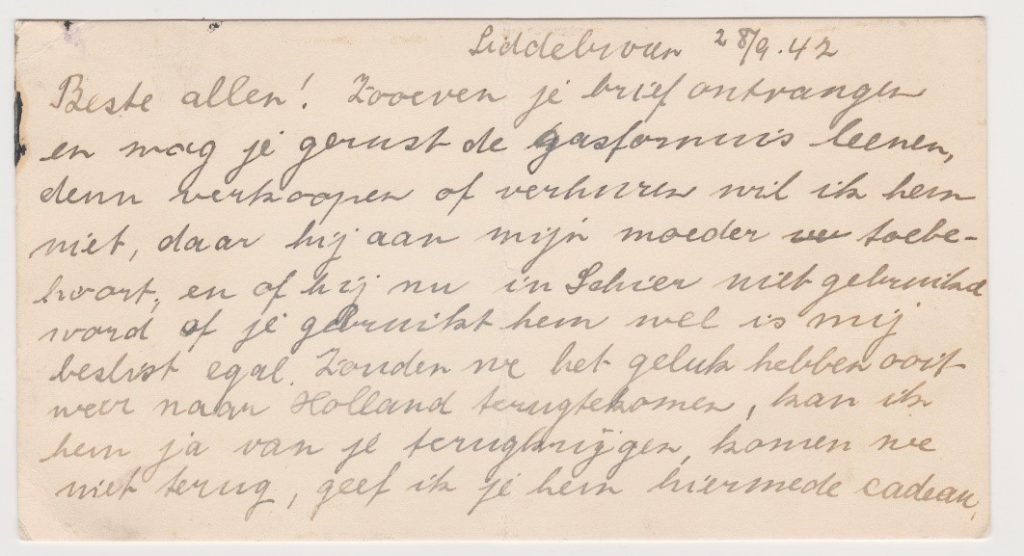 Liddebroun 28/9.42
Beste allen! Zooeven je brief ontvangen
en mag je gerust de gasfornuis leenen,
denn verkoopen of verhuren wil ik hem
niet, daar hij aan mijn moeder toebe-
hoort, en of hij nu in Schier niet gebruikd
word of je gebruikt hem wel is mij
beslist egal. Zouden we het geluk hebben ooit
weer naar Holland terugtekomen, kan ik
hem ja van je terugkrijgen, komen we
niet terug, geef ik je hem hiermede cadeau.